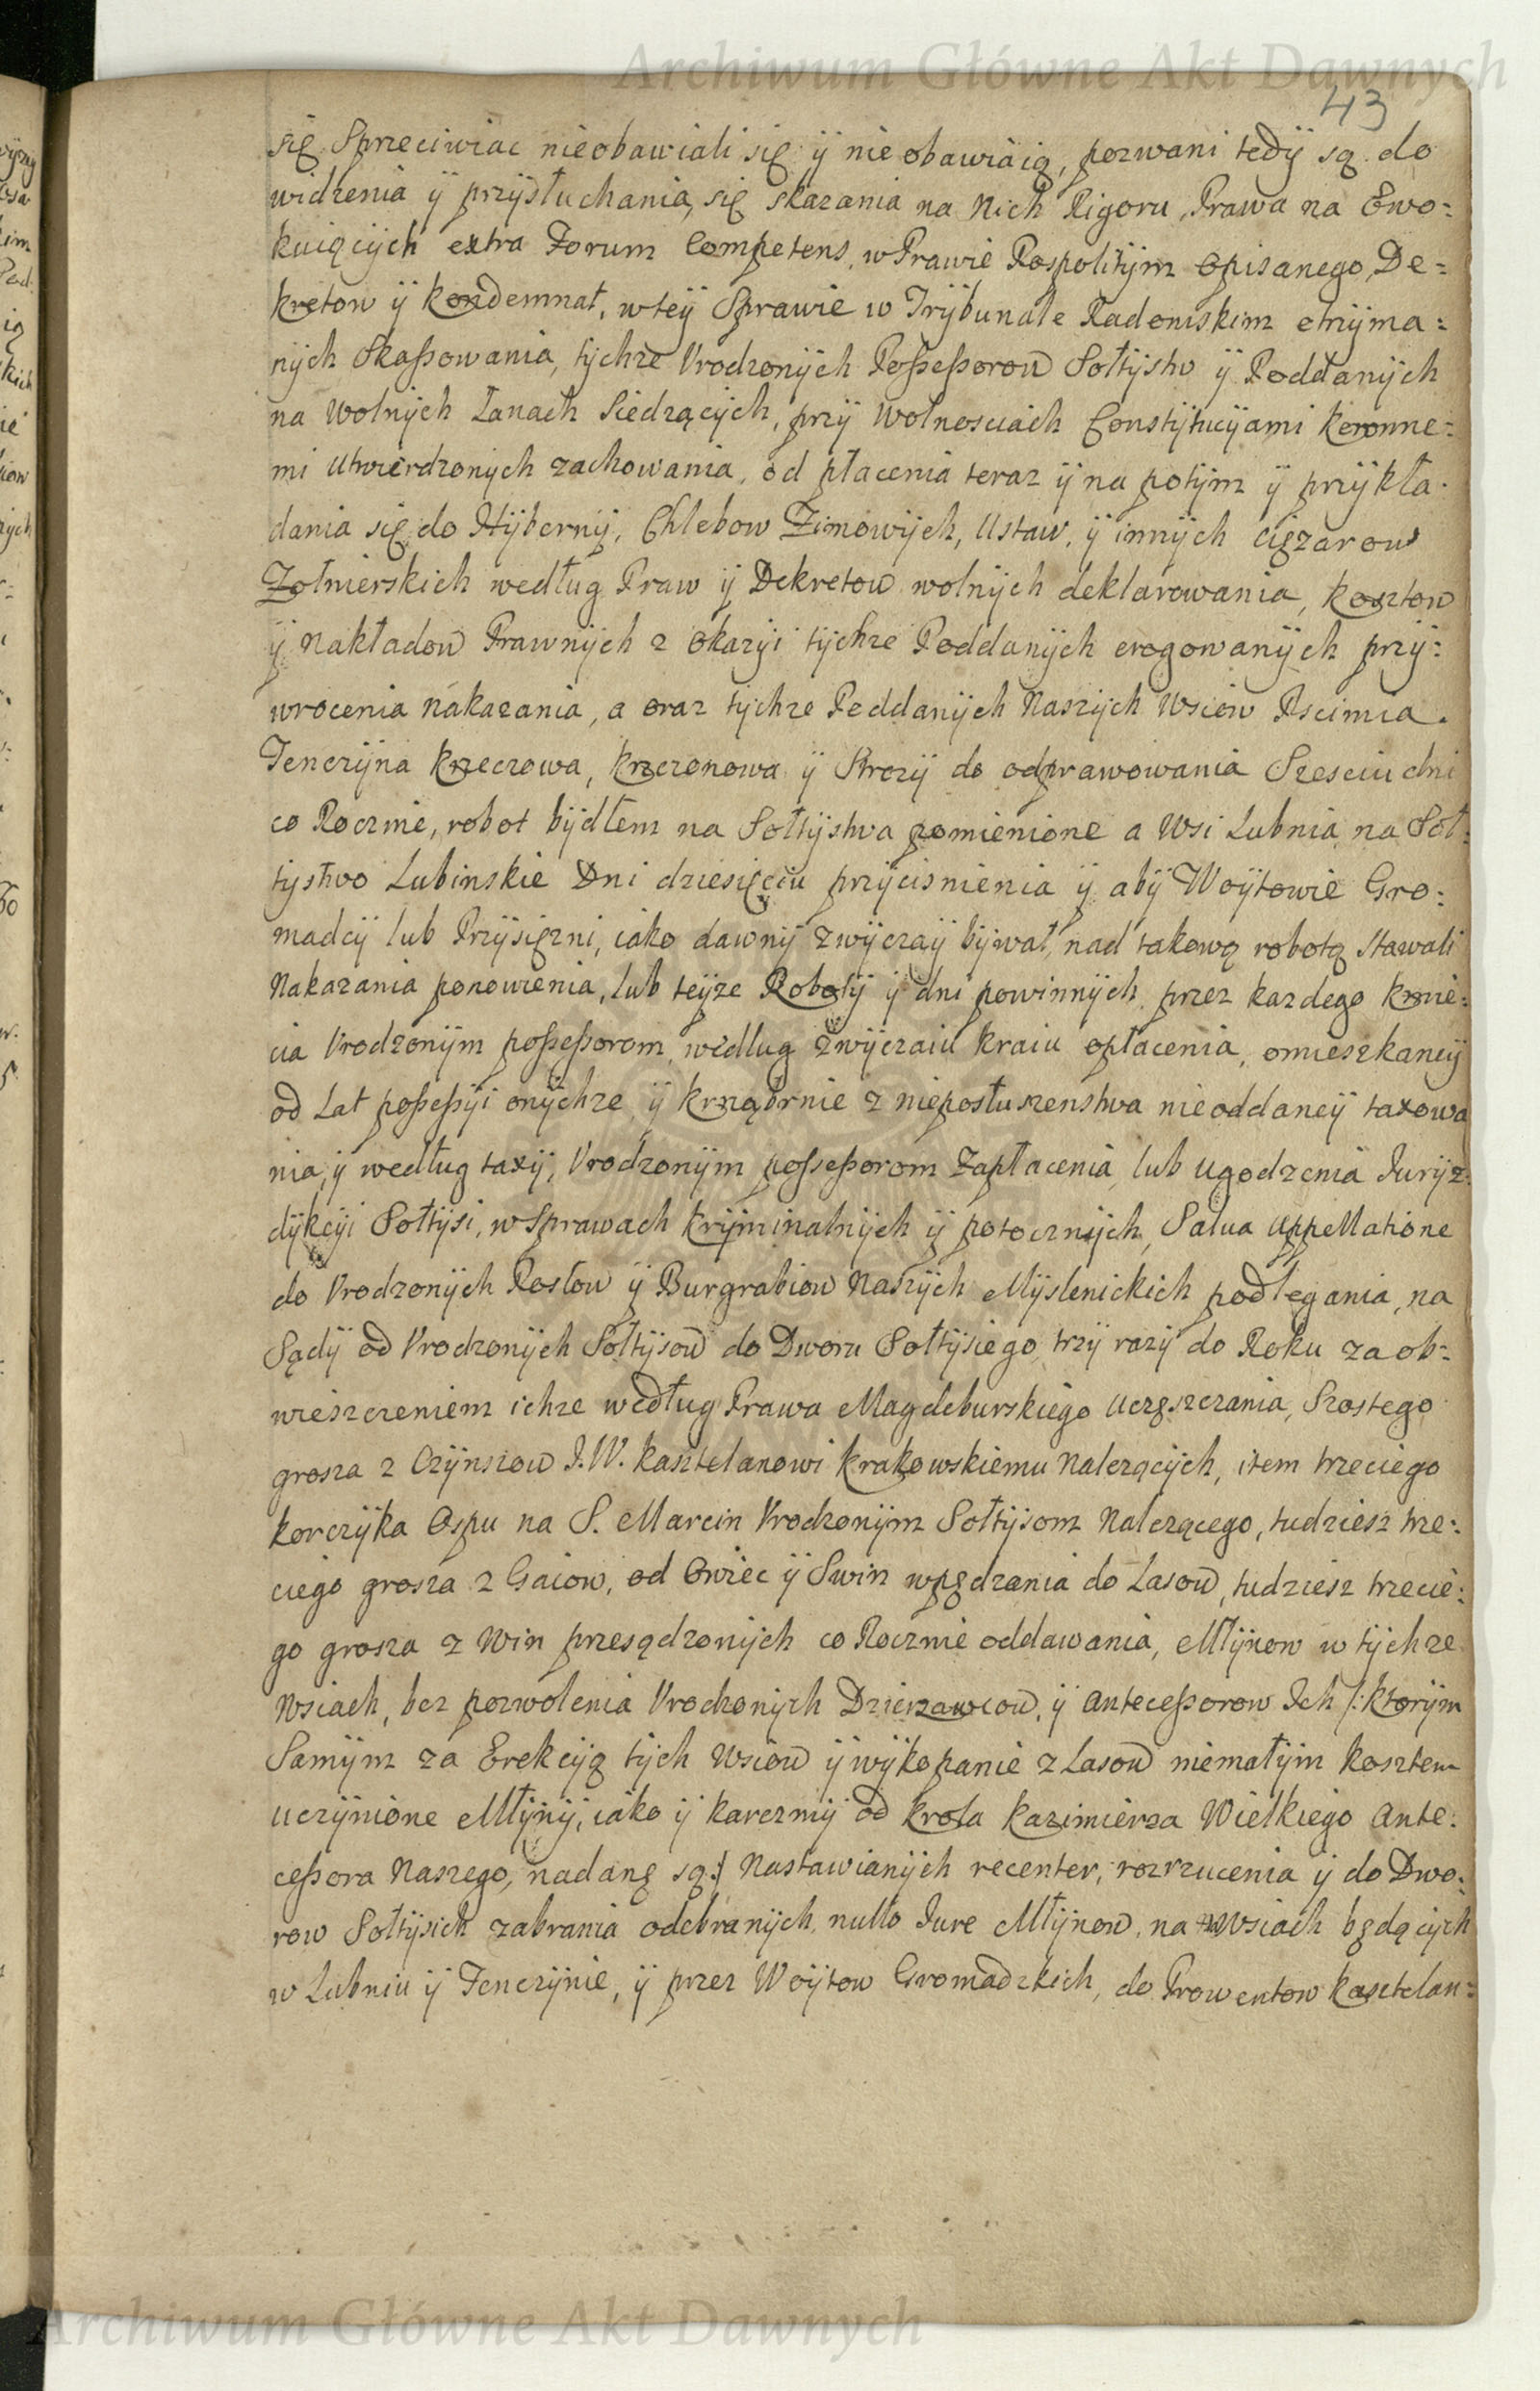 Archiwum Główne Akt Dawnych
43
się Sprzeciwiac nieobawiali się ÿ nie obawiaią, pozwani tedÿ są do
widzenia ÿ przÿsłuchania, się skazania na Nich Rigoru, Prawa na Ewo=
kuiącÿch extra Forum Competens, w Prawie Pospolitÿm Opisanego, De=
kretow ÿ kondemnat, w teÿ Sprawie w Trÿbunale Radomskim otrzÿma=
nÿch Skaßowania, tÿchze Vrodzonÿch Poßeßorow Sołtÿstw ÿ Poddanÿch
na Wolnÿch Łanach Siedzącÿch, przÿ Wolnosciach Constÿtucÿami koronne=
mi utwierdzonych zachowania, od płacenia teraz ÿ na potÿm ÿ przÿkła=
dania się do Hÿbernÿ, Chlebow Zimowÿch, Ustaw, ÿ innÿch cięzarow
Zołnierskich według Praw ÿ Dekretow wolnÿch deklarowania, kosztow
ÿ Nakładow Prawnÿch z okazÿi tÿchze Poddanÿch erogowanÿch przÿ=
wrocenia nakazania, a oraz tÿchze Poddanÿch Naszÿch Wsiow Pscimia.
Tenczÿna krzeczowa, krzczonowa ÿ Strozÿ do odprawowania Szesciu dni
co Rocznie, robot bÿdłem na Sołtÿstwa pomienione a Wsi Lubnia na Soł=
tÿstwo Lubinskie Dni dziesięciu przÿcisnienia ÿ abÿ Woÿtowie Gro=
madcÿ lub Przÿsięzni, iako dawnÿ zwÿczaÿ bÿwał, nad takową robotą stawali
Nakazania ponowienia, lub teÿze Robotÿ ÿ dni powinnÿch przez kazdego kmie=
cia Vrodzonÿm poßeßorom według zwÿczaiu kraiu opłacenia, omieszkaneÿ
od Lat poßeßÿi onÿchze ÿ krnąbrnie z nieposłuszenstwa nieoddaneÿ taxowa
nia, ÿ według taxÿ, Vrodzonÿm poßeßorom zapłacenia lub ugodzenia Jurÿz=
dÿkcÿi Sołtÿsi, w Sprawach krÿminalnÿch ÿ potocznÿch, Salua appellatione
do Vrodzonÿch Posłow ÿ Burgrabiow Naszÿch Mÿslenickich podlegania, na
Sądÿ od Vrodzonÿch Sołtÿsow do Dworu Sołtÿsiego trzÿ razÿ do Roku za ob=
wieszczeniem ichze według Prawa Magdeburskiego uczęszczania, Szostego
grosza z Czÿnszow J.W. kasztelanowi krakowskiemu Nalezącÿch, item trzeciego
korczÿka Ospu na S. Marcin Vrodzonÿm Sołtÿsom Nalezącego, tudziesz trze=
ciego grosza z Gaiow, od Owiec ÿ Swin wpędzania do Lasow, tudziesz trzecie=
go grosza z Win przesądzonÿch co Rocznie oddawania, Młÿnow w tÿchze
Wsiach, bez pozwolenia Vrodzonÿch Dzierzawcow, ÿ Anteceßorow Jch /: ktorÿm
Samÿm za Erekcÿą tÿch Wsiow ÿ wÿkopanie z Lasow niemałÿm kosztem
uczÿnione Młÿnÿ, iako ÿ karczmÿ od krola kazimierza Wielkiego Ante=
ceßora Naszego, nadane są :/ Nastawianÿch recenter, rozrzucenia ÿ do Dwo=
row Sołtÿsich zabrania odebranÿch nullo Jure Młÿnow, na Wsiach będącÿch
w Lubniu ÿ Tenczÿnie, ÿ przez Woÿtow Gromadzkich, do Prowentow kasztelan=
Archiwum Główne Akt Dawnych